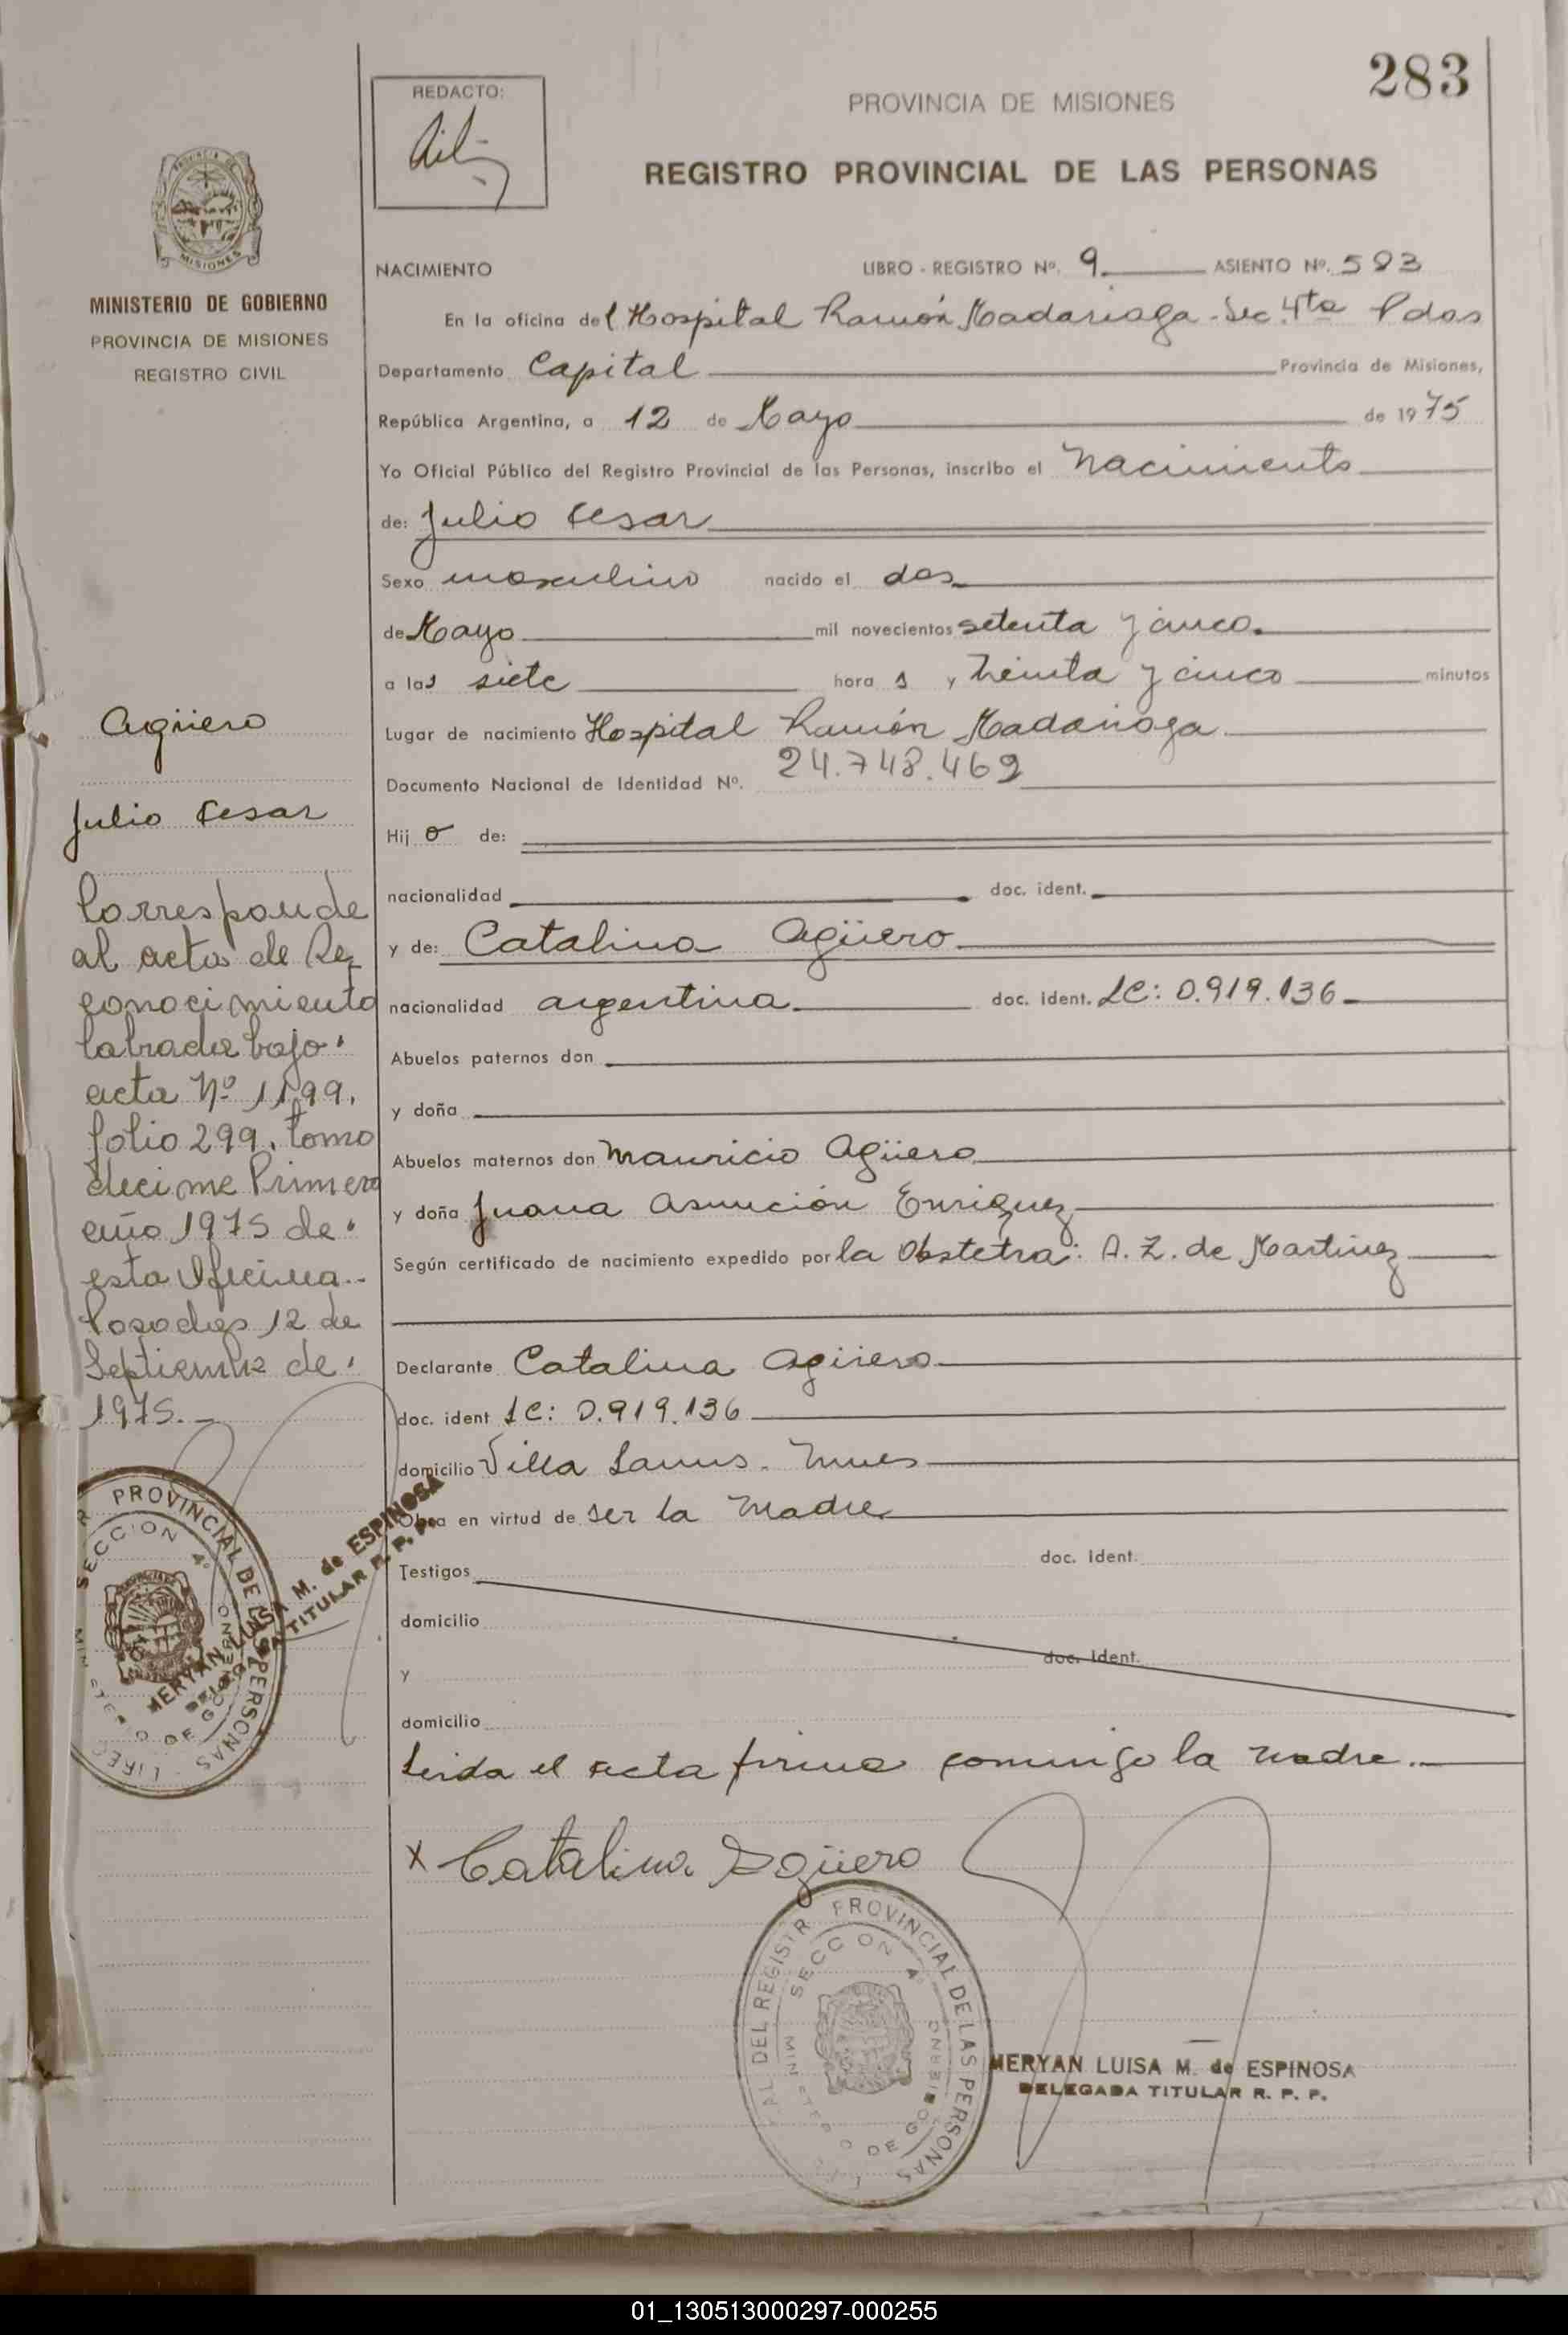 283
REDACTO:
PROVINCIA DE MISIONES
REGISTRO PROVINCIAL DE LAS PERSONAS
MISIONES
MINISTERIO DE GOBIERNO
PROVINCIA DE MISIONES
REGISTRO CIVIL
NACIMIENTO LIBRO - REGISTRO Nº. 9 ASIENTO Nº. 593
En la oficina del Hospital Ramón Madariaga - Sec. 4ta Pdas
Departamento Capital Provincia de Misiones,
República Argentina, a 12 de Mayo de 1975
Yo Oficial Público del Registro Provincial de las Personas, inscribo el Nacimiento
de: Julio Cesar
Sexo masculino nacido el dos
de Mayo mil novecientos setenta y cinco.
a las siete hora s y treinta y cinco minutos
Lugar de nacimiento Hospital Ramón Madariaga
Documento Nacional de Identidad Nº. 24.748.469
Hij o de:
nacionalidad doc. ident.
y de: Catalina Agüero
nacionalidad argentina doc. ident. LC: 0.919.136
Abuelos paternos don
y doña
Abuelos maternos don Mauricio Agüero
y doña Juana Asunción Enriquez
Según certificado de nacimiento expedido por la Obstetra: A. Z. de Martinez
Declarante Catalina Agüero
doc. ident LC: 0.919.136
domicilio Villa Lanus - Mnes
Obra en virtud de ser la Madre
Testigos doc. ident.
domicilio
y doc. ident.
domicilio
Leida el acta firma conmigo la madre.
x Catalina Agüero
MERYAN LUISA M. de ESPINOSA
DELEGADA TITULAR R. P. P.
AL DEL REGISTR PROVINCIAL DE LAS PERSONAS
SECCION 4
DE GOBIERNO
Agüero
Julio Cesar
Corresponde
al acta de Re
conocimiento
labrada bajo
acta Nº 1199.
folio 299. tomo
decimo Primero
año 1975 de
esta Oficina.
Posadas 12 de
Septiembre de
1975.
PROVINCIAL DE LAS PERSONAS
SECCION 4º
DE GOBIERNO
MERYAN LUISA M. de ESPINOSA
DELEGADA TITULAR R. P. P.
01_130513000297-000255